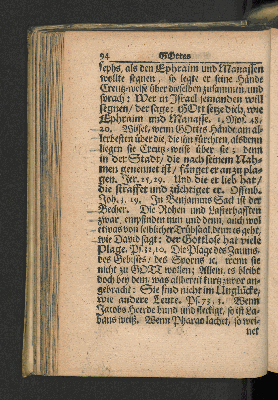 94 GOttes
sephs, als den Ephraim und Manassen
wolte segnen, so legte er seine Hände
Creutz-weise über dieselben zusammen, und
sprach: Wer in Israel jemanden will
segnen, der sage: GOtt setze dich, wie
Ephraim und Manasse. 1. Mos. 48/
20. Wisset, wenn GOttes Hände am al-
lerbesten über die, die ihn fürchten, alsdenn
liegen sie Creutz-weise über sie: denn
in der Stadt, die nach seinem Nah-
men genennet ist/ fänget er an zu pla-
gen. Jer. 25, 29. Und die er lieb hat/
die straffet und züchtiget er. Offenb.
Joh. 3. 19. In Benjamins Sack ist der
Becher. Die Rohen und Lasterhafften
zwar, empfinden nun und denn, auch wol
etwas von leiblicher Trübsaal, denn es geht,
wie David sagt: der Gottlose hat viele
Plage. Ps. 32, 10. Die Plage des Zaums,
des Gebisses/ des Sporns ꝛc. wenn sie
nicht zu GOTT wollen; Allein, es bleibet
doch bey dem, was allbereit kurtz zuvor an-
gebracht: Sie sind nicht im Unglücke,
wie andere Leute. Ps. 73, 5. Wenn
Jacobs Heerde bund und fleckigt, so ist La-
bans weiß. Wenn Pharao lachet, so wei-
net